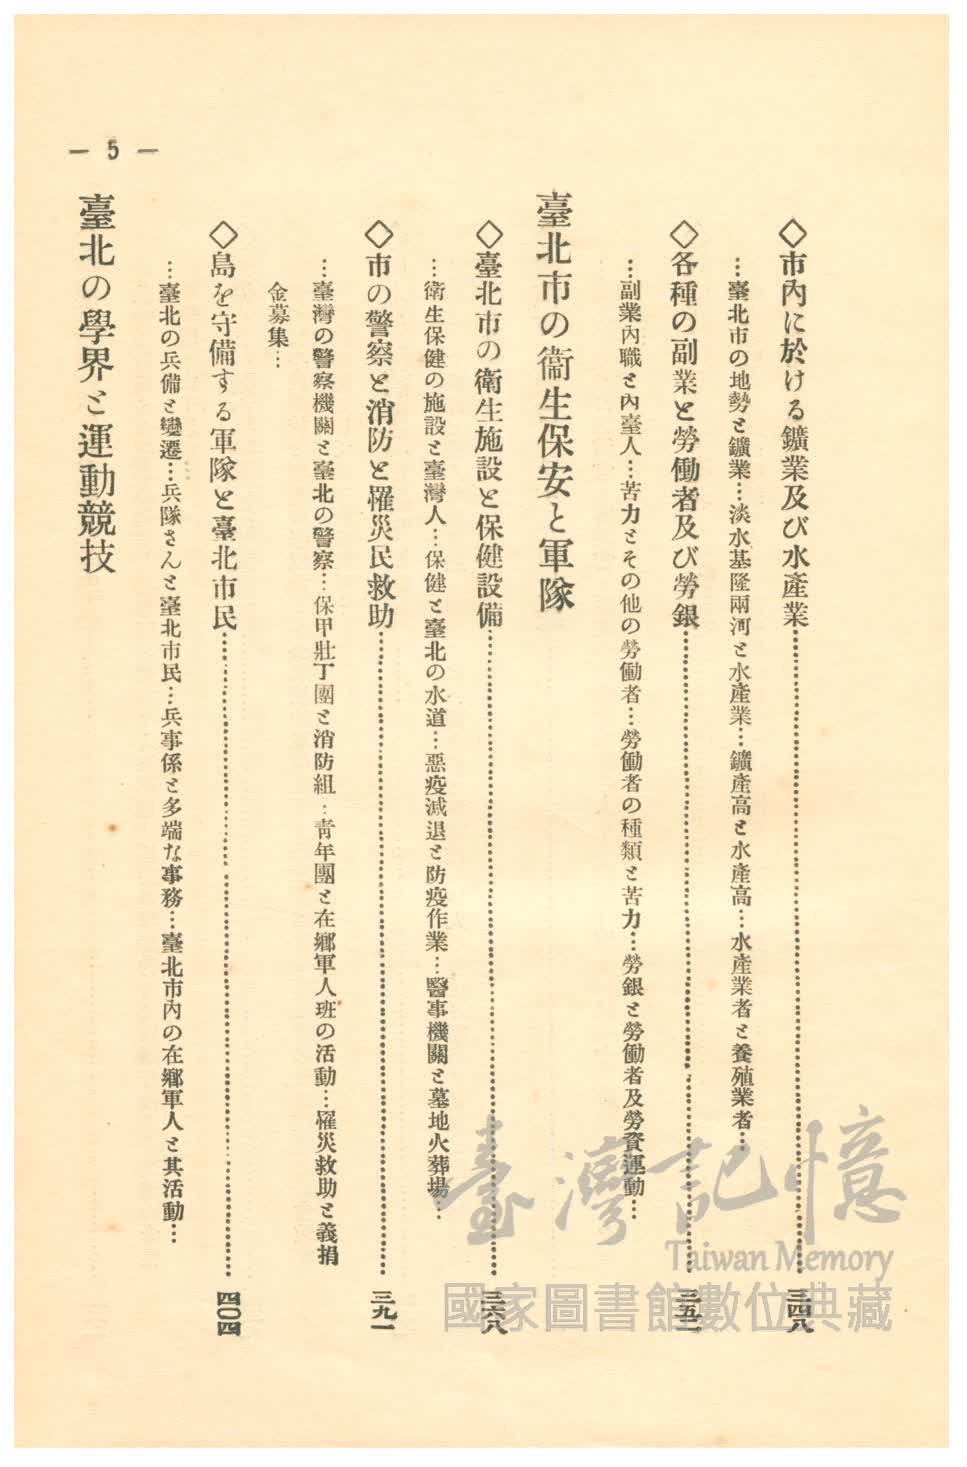 ◇市內に於ける鑛業及び水產業……………三四八
…臺北市の地勢と鑛業…淡水基隆兩河と水產業…鑛產高と水產高…水產業者と養殖業者…
◇各種の副業と勞働者及び勞銀……………三五二
…副業內職と內臺人…苦力とその他の勞働者…勞働者の種類と苦力…勞銀と勞働者及勞資運動…
臺北市の衞生保安と軍隊
◇臺北市の衛生施設と保健設備……………三六八
…衛生保健の施設と臺灣人…保健と臺北の水道…惡疫減退と防疫作業…醫事機關と墓地火葬場…
◇市の警察と消防と罹災民救助……………三九一
…臺灣の警察機關と臺北の警察…保甲壯丁團と消防組…靑年團と在鄕軍人班の活動…罹災救助と義捐
金募集…
◇島を守備する軍隊と臺北市民……………四〇四
…臺北の兵備と變遷…兵隊さんと臺北市民…兵事係と多端な事務…臺北市內の在鄕軍人と其活動…
臺北の學界と運動競技
— 5 —
臺灣記憶
Taiwan Memory
國家圖書館數位典藏